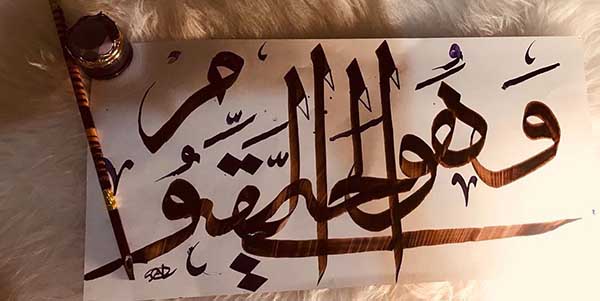 وهو الحي القيوم